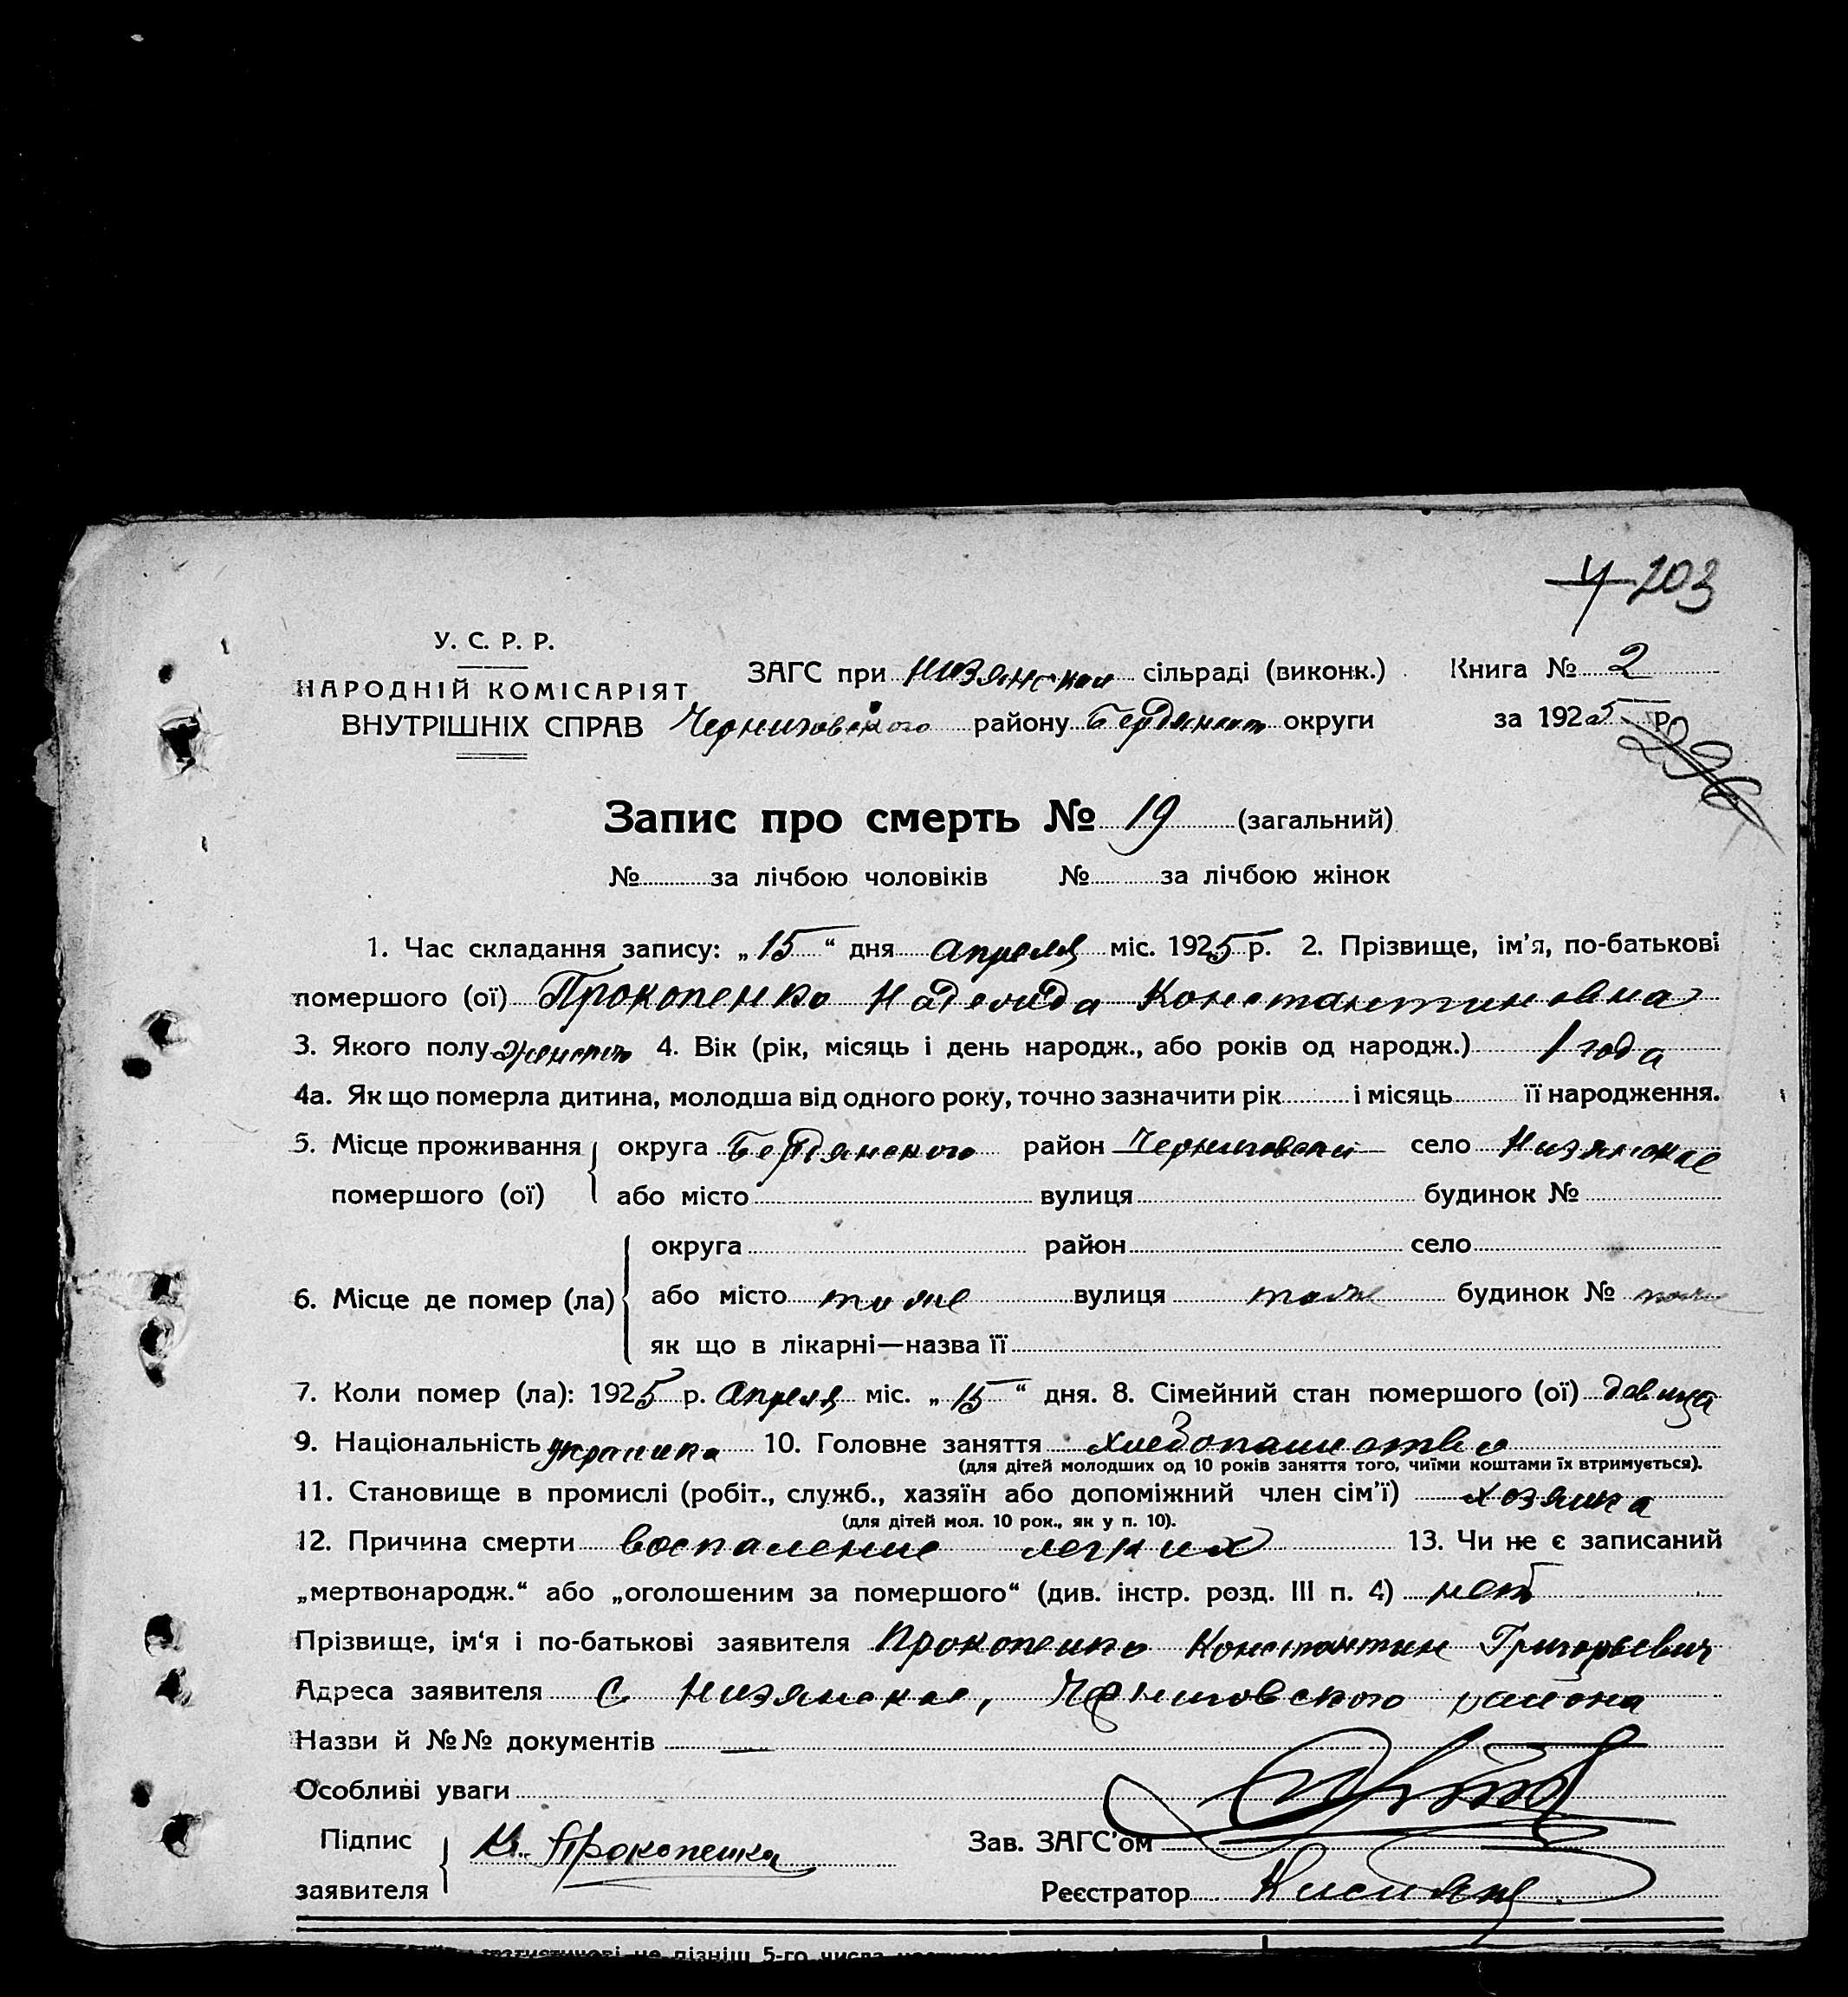 203
У. С. Р. Р.
НАРОДНІЙ КОМІСАРІЯТ
ВНУТРІШНІХ СПРАВ
ЗАГС при Низянской сільраді (виконк.) Книга № 2
Черниговского району Бердянск округи за 1925 р.
296
Запис про смерть № 19 (загальний)
№ за лічбою чоловіків № за лічбою жінок
1. Час складання запису: „15“ дня апреля міс. 1925 р. 2. Прізвище, ім'я, по-батькові
помершого (ої) Прокопенко Надежда Константиновна
3. Якого полу женского 4. Вік (рік, місяць і день народж., або років од народж.) 1 года
4а. Як що померла дитина, молодша від одного року, точно зазначити рік і місяць її народження.
5. Місце проживання округа Бердянского район Черниговски село Низянское
помершого (ої) або місто вулиця будинок №
округа район село
6. Місце де помер (ла) або місто тоже вулиця тоже будинок № тоже
як що в лікарні—назва її
7. Коли помер (ла): 1925 р. Апреля міс. „15“ дня. 8. Сімейний стан помершого (ої) девица
9. Національність украинка 10. Головне заняття хлебопашество
(для дітей молодших од 10 років заняття того, чиїми коштами їх втримується).
11. Становище в промислі (робіт., служб., хазяїн або допоміжний член сім'ї) хозяика
(для дітей мол. 10 рок., як у п. 10).
12. Причина смерти воспаление легких 13. Чи не є записаний
„мертвонародж.“ або „оголошеним за помершого“ (див. інстр. розд. III п. 4) нет
Прізвище, ім'я і по-батькові заявителя Прокопенко Константин Григорьевич
Адреса заявителя с Низянское, Черниговского района
Назви й №№ документів —
Особливі уваги
Підпис
заявителя К. Прокопенка
Зав. ЗАГС'ом
Реєстратор
не пізніш 5-го числа